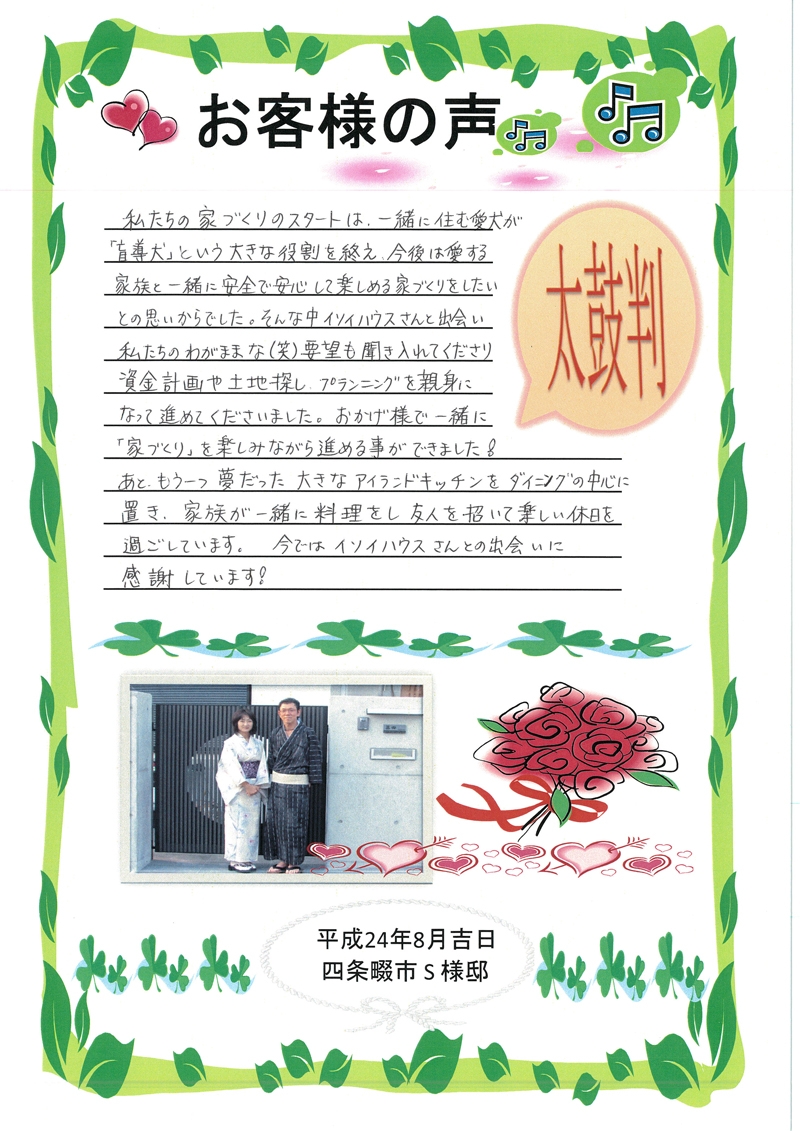 お客様の声
私たちの家づくりのスタートは、一緒に住む愛犬が
「盲導犬」という大きな役割を終え、今後は愛する
家族と一緒に安全で安心して楽しめる家づくりをしたい
との思いからでした。そんな中イソイハウスさんと出会い
私たちのわがままな(笑)要望も聞き入れてくださり
資金計画や土地探し、プランニングを親身に
なって進めてくださいました。おかげ様で一緒に
「家づくり」を楽しみながら進める事ができました!
あと、もう一つ夢だった大きなアイランドキッチンをダイニングの中心に
置き、家族が一緒に料理をし友人を招いて楽しい休日を
過ごしています。 今ではイソイハウスさんとの出会いに
感謝しています!
太鼓判
平成24年8月吉日
四条畷市S様邸